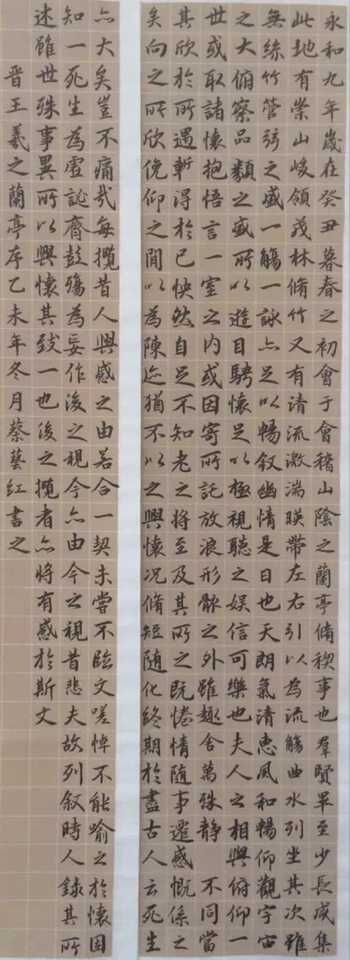 永和九年歲在癸丑暮春之初會于會稽山陰之蘭亭脩稧事也羣賢畢至少長咸集
此地有崇山峻領茂林脩竹又有清流激湍暎帶左右引以為流觴曲水列坐其次雖
無絲竹管弦之盛一觴一詠亦足以暢敘幽情是日也天朗氣清惠風和暢仰觀宇宙
之大俯察品類之盛所以遊目騁懷足以極視聽之娛信可樂也夫人之相與俯仰一
世或取諸懷抱悟言一室之內或因寄所託放浪形骸之外雖趣舍萬殊靜 不同當
其欣於所遇暫得於己快然自足不知老之將至及其所之既惓情隨事遷感慨係之
矣向之所欣俛仰之間以為陳迹猶不以之興懷況脩短隨化終期於盡古人云死生
亦大矣豈不痛哉每攬昔人興感之由若合一契未嘗不臨文嗟悼不能喻之於懷固
知一死生為虛誕齊彭殤為妄作後之視今亦由今之視昔悲夫故列敘時人錄其所
述雖世殊事異所以興懷其致一也後之攬者亦將有感於斯文
晉王羲之蘭亭序乙未年冬月蔡藝紅書之